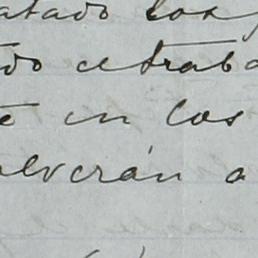 atado los
do el trab
en los
lverán a